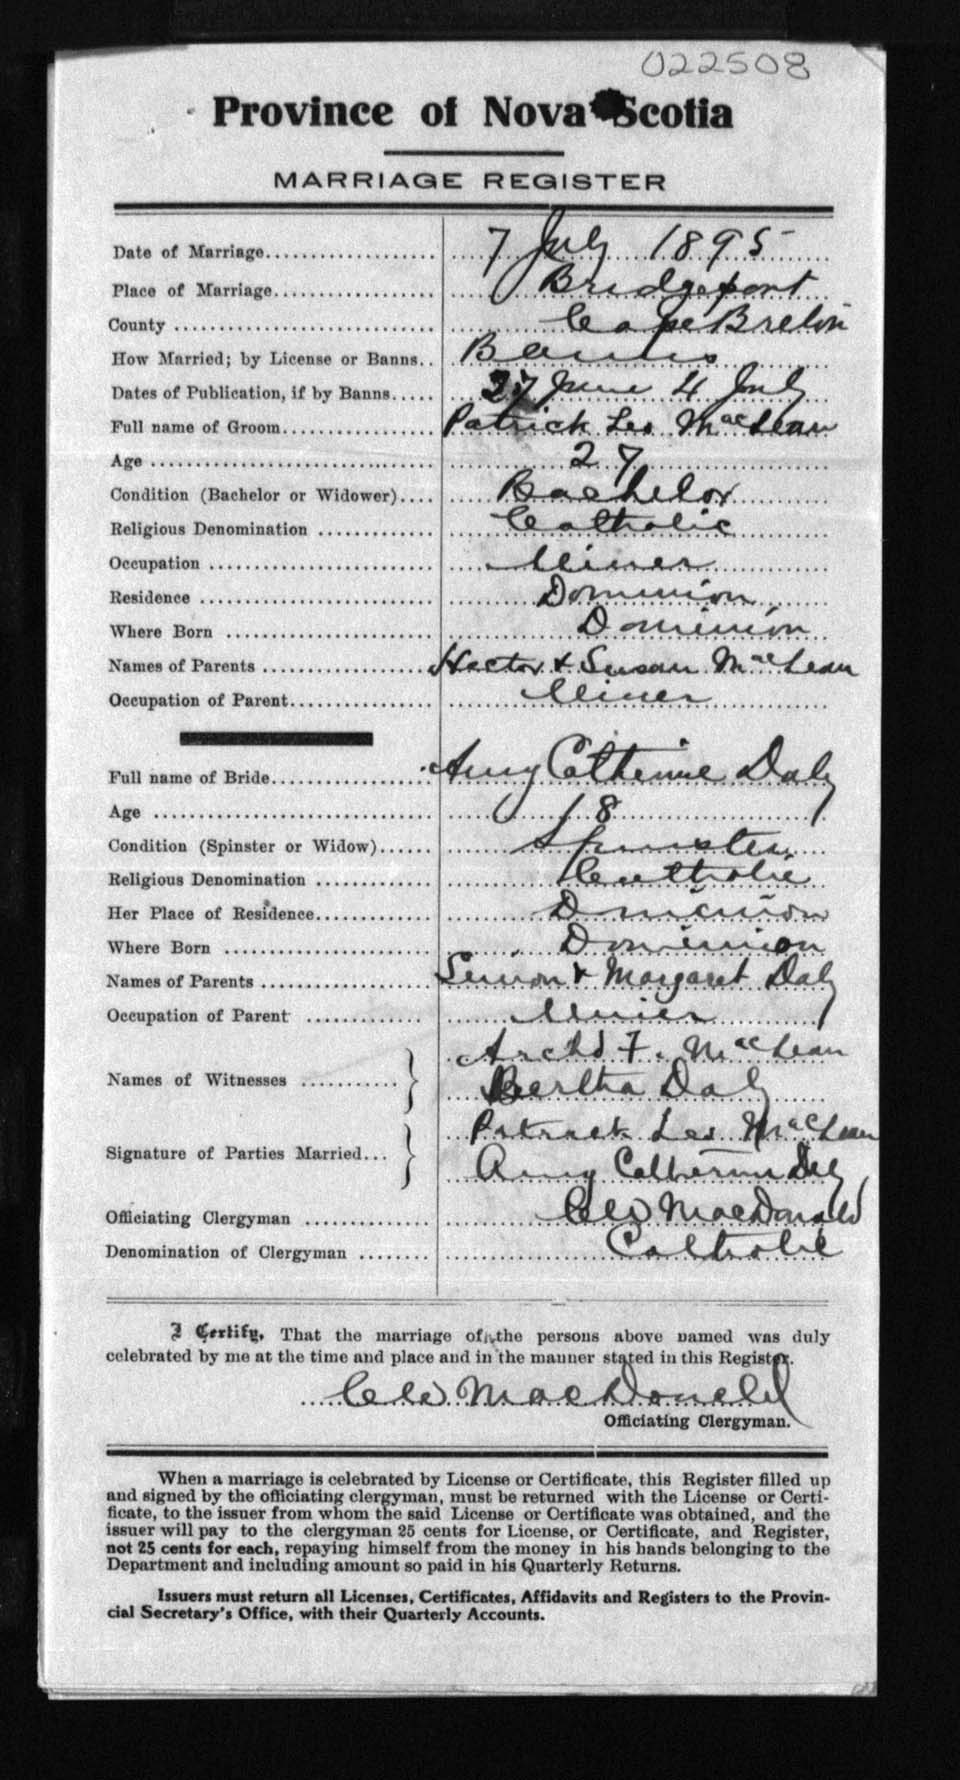 022508
Province of Nova Scotia
MARRIAGE REGISTER
Date of Marriage 7 July 1895
Place of Marriage Bridgeport
County Cape Breton
How Married; by License or Banns Banns
Dates of Publication, if by Banns 27 June 4 July
Full name of Groom Patrick Leo MacLean
Age 27
Condition (Bachelor or Widower) Bachelor
Religious Denomination Catholic
Occupation Miner
Residence Dominion
Where Born Dominion
Names of Parents Hector & Susan MacLean
Occupation of Parent Miner
Full name of Bride Amy Catherine Daly
Age 18
Condition (Spinster or Widow) Spinster
Religious Denomination Catholic
Her Place of Residence Dominion
Where Born Dominion
Names of Parents Simon & Margaret Daly
Occupation of Parent Miner
Archd F. MacLean
Names of Witnesses
Bertha Daly
Patrick Leo MacLean
Signature of Parties Married
Amy Catherine Daly
Officiating Clergyman MacDonald
Denomination of Clergyman Catholic
I Certify, That the marriage of the persons above named was duly
celebrated by me at the time and place and in the manner stated in this Register.
MacDonald
Officiating Clergyman.
When a marriage is celebrated by License or Certificate, this Register filled up
and signed by the officiating clergyman, must be returned with the License or Certi-
ficate, to the issuer from whom the said License or Certificate was obtained, and the
issuer will pay to the clergyman 25 cents for License, or Certificate, and Register,
not 25 cents for each, repaying himself from the money in his hands belonging to the
Department and including amount so paid in his Quarterly Returns.
Issuers must return all Licenses, Certificates, Affidavits and Registers to the Provin-
cial Secretary's Office, with their Quarterly Accounts.